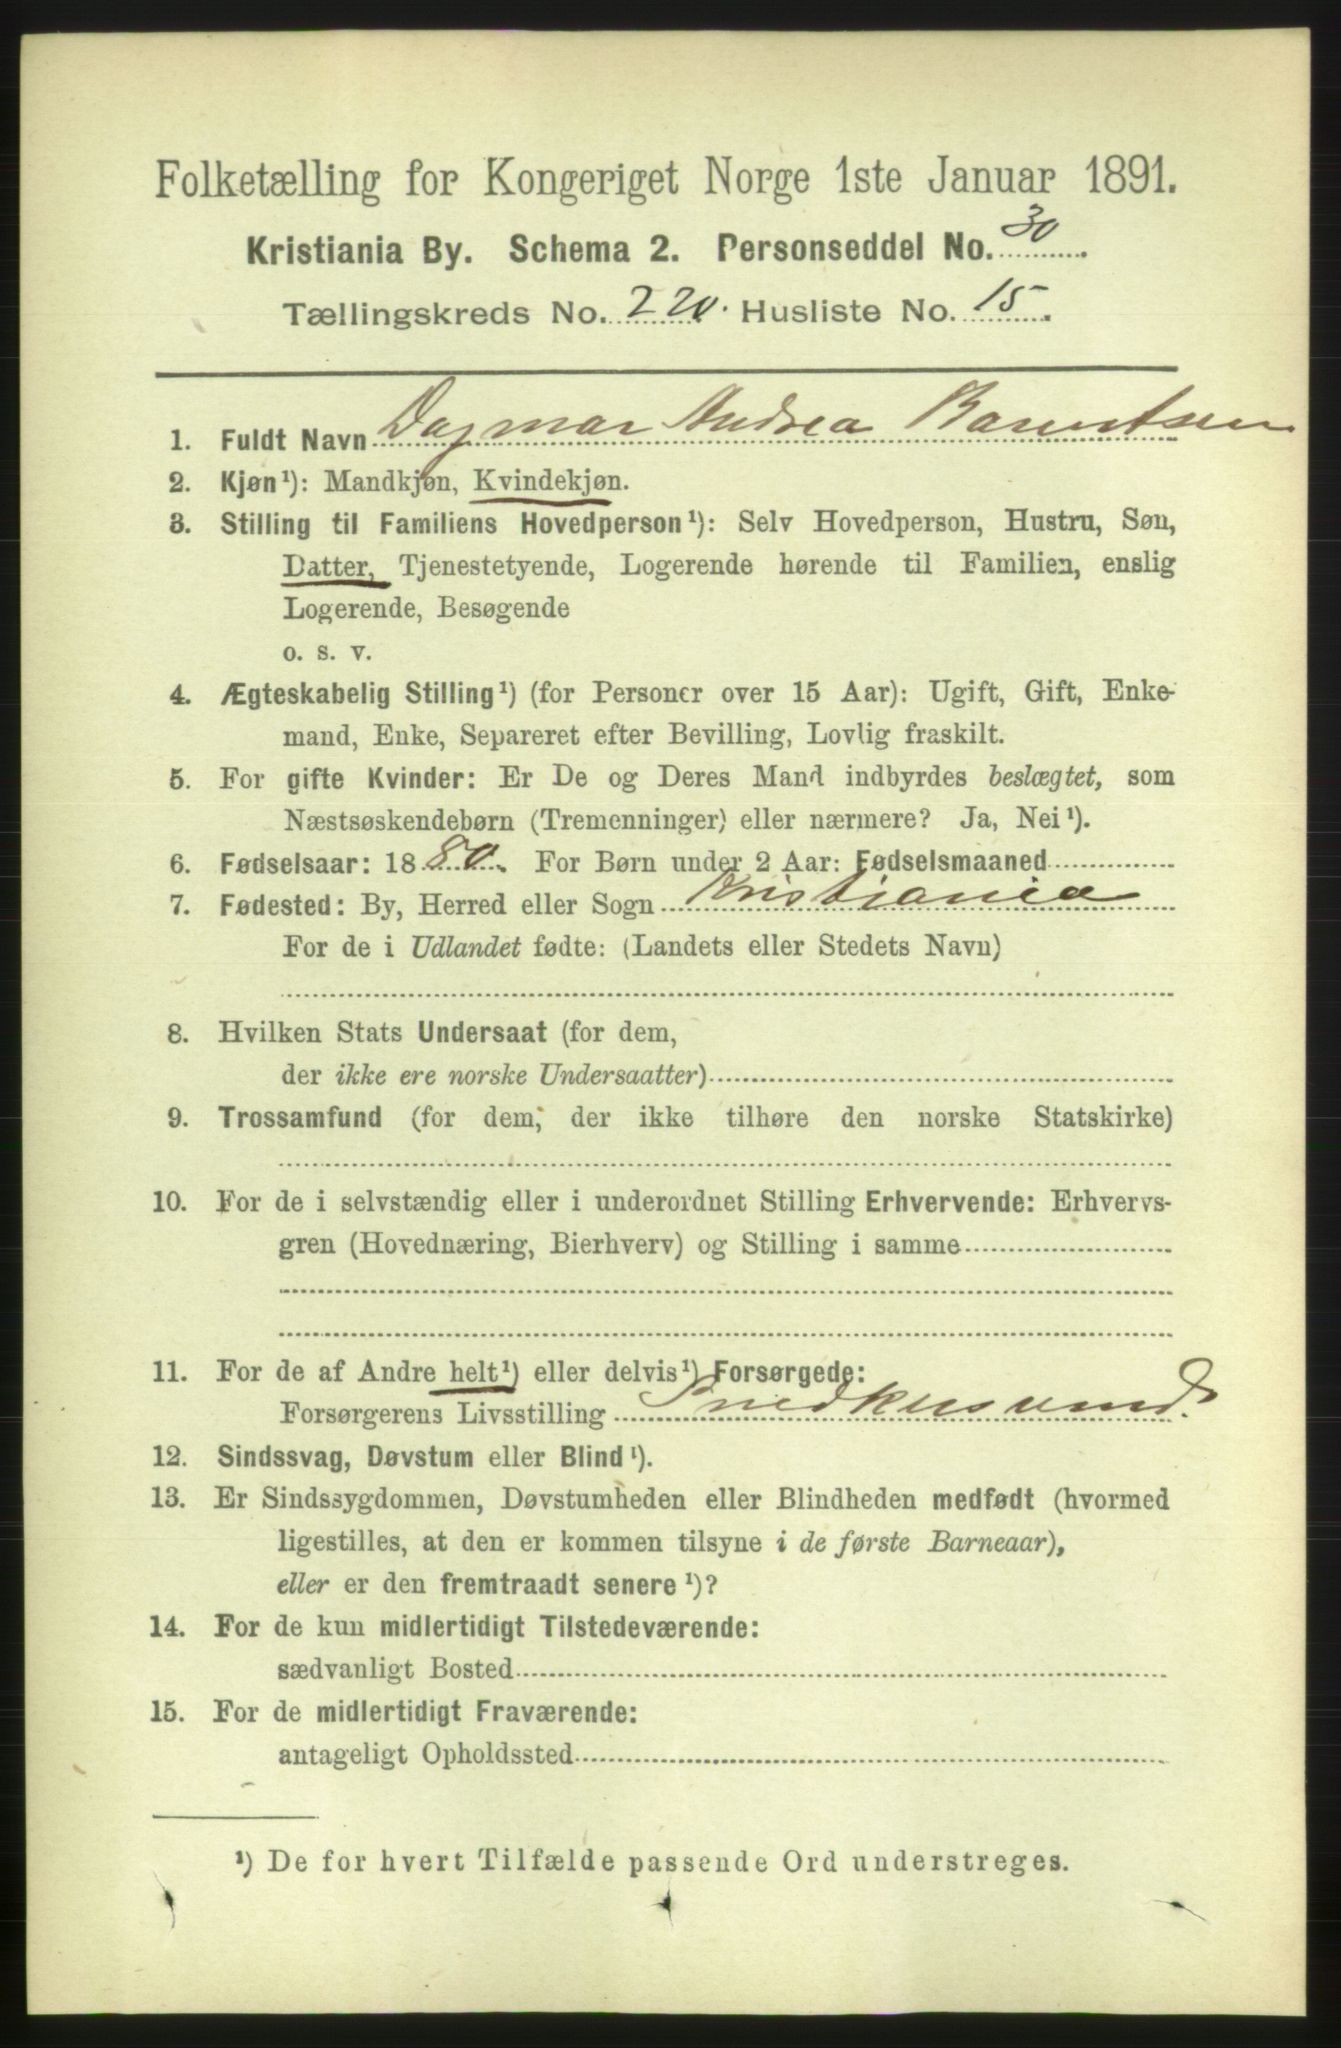 Folketælling for Kongeriget Norge 1ste Januar 1891.
Kristiania By. Schema 2. Personseddel No. 30.
Tællingskreds No. 220. Husliste No. 15.
1. Fuldt Navn Dagmar Andrea Barentsen
2. Kjøn¹): Mandkjøn, Kvindekjøn.
3. Stilling til Familiens Hovedperson¹): Selv Hovedperson, Hustru, Søn,
Datter, Tjenestetyende, Logerende hørende til Familien, enslig
Logerende, Besøgende
o. s. v.
4. Ægteskabelig Stilling¹) (for Personer over 15 Aar): Ugift, Gift, Enke-
mand, Enke, Separeret efter Bevilling, Lovlig fraskilt.
5. For gifte Kvinder: Er De og Deres Mand indbyrdes beslægtet, som
Næstsøskendebørn (Tremenninger) eller nærmere? Ja, Nei¹).
6. Fødselsaar: 1880. For Børn under 2 Aar: Fødselsmaaned
7. Fødested: By, Herred eller Sogn Kristiania
For de i Udlandet fødte: (Landets eller Stedets Navn)
8. Hvilken Stats Undersaat (for dem,
der ikke ere norske Undersaatter)
9. Trossamfund (for dem, der ikke tilhøre den norske Statskirke)
10. For de i selvstændig eller i underordnet Stilling Erhvervende: Erhvervs-
gren (Hovednæring, Bierhverv) og Stilling i samme
11. For de af Andre helt¹) eller delvis¹) Forsørgede:
Forsørgerens Livsstilling Snedkersvend.
12. Sindssvag, Døvstum eller Blind¹).
13. Er Sindssygdommen, Døvstumheden eller Blindheden medfødt (hvormed
ligestilles, at den er kommen tilsyne i de første Barneaar),
eller er den fremtraadt senere¹)?
14. For de kun midlertidigt Tilstedeværende:
sædvanligt Bosted
15. For de midlertidigt Fraværende:
antageligt Opholdssted
¹) De for hvert Tilfælde passende Ord understreges.